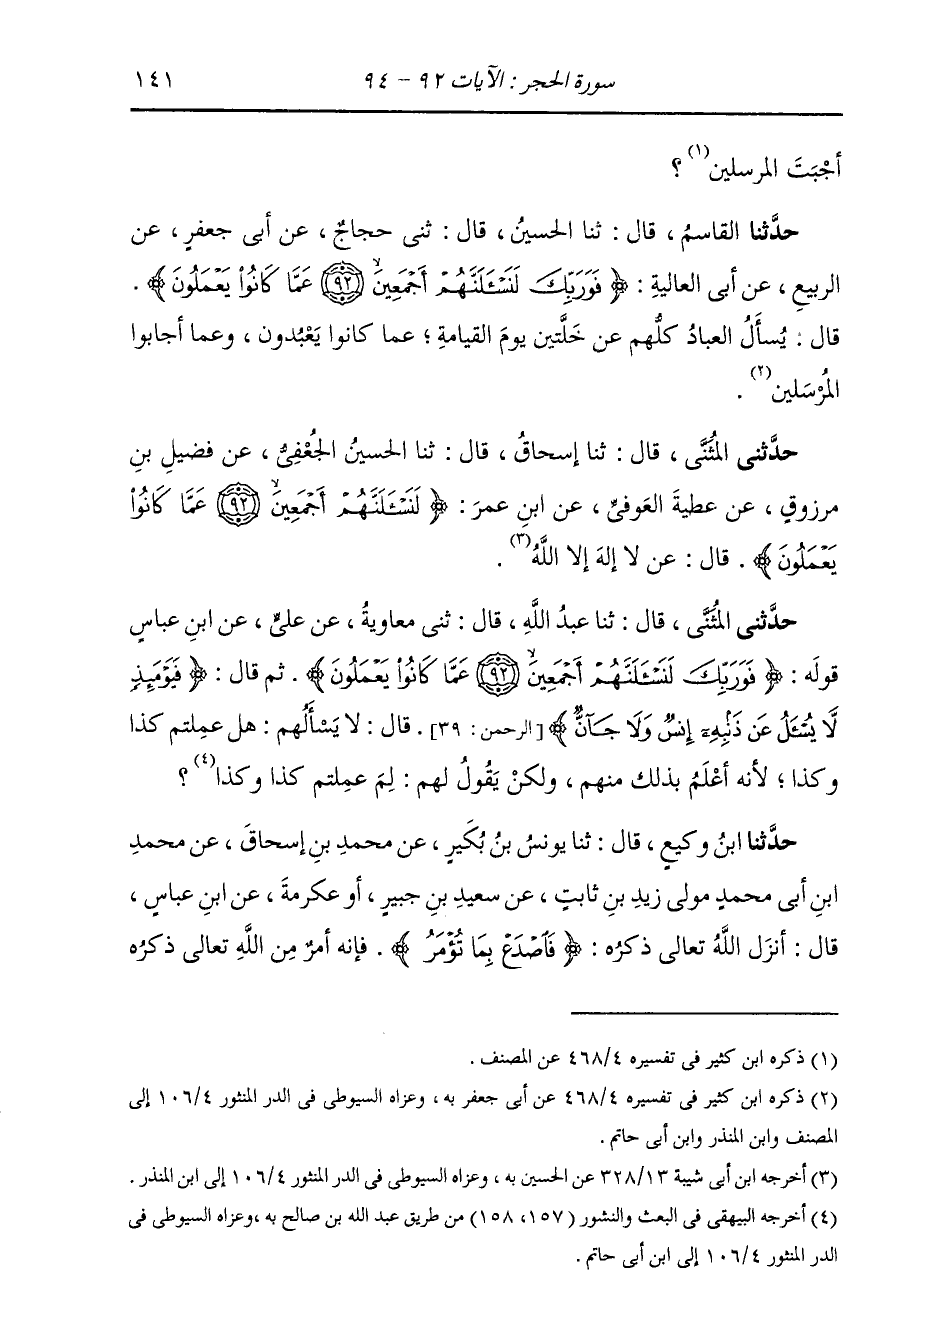 سورة الحجر : الآيات ٩٢ - ٩٤ ١٤١
أجَبْتَ المرسلين(١) ؟
حدَّثنا القاسمُ ، قال : ثنا الحسينُ ، قال : ثنى حجاجٌ ، عن أبى جعفرٍ ، عن
الربيعِ ، عن أبى العاليةِ : ﴿ فَوَرَبِّكَ لَنَسْـَٔلَنَّهُمْ أَجْمَعِينَ ۙ ﴿٩٢﴾ عَمَّا كَانُوا۟ يَعْمَلُونَ ﴾ .
قال : يُسأَلُ العبادُ كلُّهم عن خَلَّتين يومَ القيامةِ ؛ عما كانوا يَعْبُدون ، وعما أجابوا
المُرْسَلين(٢) .
حدَّثنى المُثَنَّى ، قال : ثنا إسحاقُ ، قال : ثنا الحسينُ الجُعْفِىُّ ، عن فضيلِ بنِ
مرزوقٍ ، عن عطيةَ العَوفىِّ ، عن ابنِ عمرَ : ﴿ لَنَسْـَٔلَنَّهُمْ أَجْمَعِينَ ۙ ﴿٩٢﴾ عَمَّا كَانُوا۟
يَعْمَلُونَ ﴾ . قال : عن لا إلهَ إلا اللَّهُ(٣) .
حدَّثنى المُثَنَّى ، قال : ثنا عبدُ اللَّهِ ، قال : ثنى معاويةُ ، عن علىٍّ ، عن ابنِ عباسٍ
قولَه : ﴿ فَوَرَبِّكَ لَنَسْـَٔلَنَّهُمْ أَجْمَعِينَ ۙ ﴿٩٢﴾ عَمَّا كَانُوا۟ يَعْمَلُونَ ﴾ . ثم قال : ﴿ فَيَوْمَئِذٍ
لَّا يُسْـَٔلُ عَن ذَنۢبِهِۦٓ إِنسٌ وَلَا جَآنٌّ ﴾ [الرحمن : ٣٩] . قال : لا يَسْأَلُهم : هل عمِلتم كذا
وكذا ؛ لأنه أعْلَمُ بذلك منهم ، ولكنْ يَقُولُ لهم : لِمَ عمِلتم كذا وكذا(٤) ؟
حدَّثنا ابنُ وكيعٍ ، قال : ثنا يونسُ بنُ بُكَيرٍ ، عن محمدِ بنِ إسحاقَ ، عن محمدِ
ابنِ أبى محمدٍ مولى زيدِ بنِ ثابتٍ ، عن سعيدِ بنِ جبيرٍ ، أو عكرمةَ ، عن ابنِ عباسٍ ،
قال : أنزَل اللَّهُ تعالى ذكرُه : ﴿ فَٱصْدَعْ بِمَا تُؤْمَرُ ﴾ . فإنه أمرٌ مِن اللَّهِ تعالى ذكرُه
(١) ذكره ابن كثير فى تفسيره ٤٦٨/٤ عن المصنف .
(٢) ذكره ابن كثير فى تفسيره ٤٦٨/٤ عن أبى جعفر به ، وعزاه السيوطى فى الدر المنثور ١٠٦/٤ إلى
المصنف وابن المنذر وابن أبى حاتم .
(٣) أخرجه ابن أبى شيبة ٣٢٨/١٣ عن الحسين به ، وعزاه السيوطى فى الدر المنثور ١٠٦/٤ إلى ابن المنذر .
(٤) أخرجه البيهقى فى البعث والنشور (١٥٧، ١٥٨) من طريق عبد الله بن صالح به ،وعزاه السيوطى فى
الدر المنثور ١٠٦/٤ إلى ابن أبى حاتم .